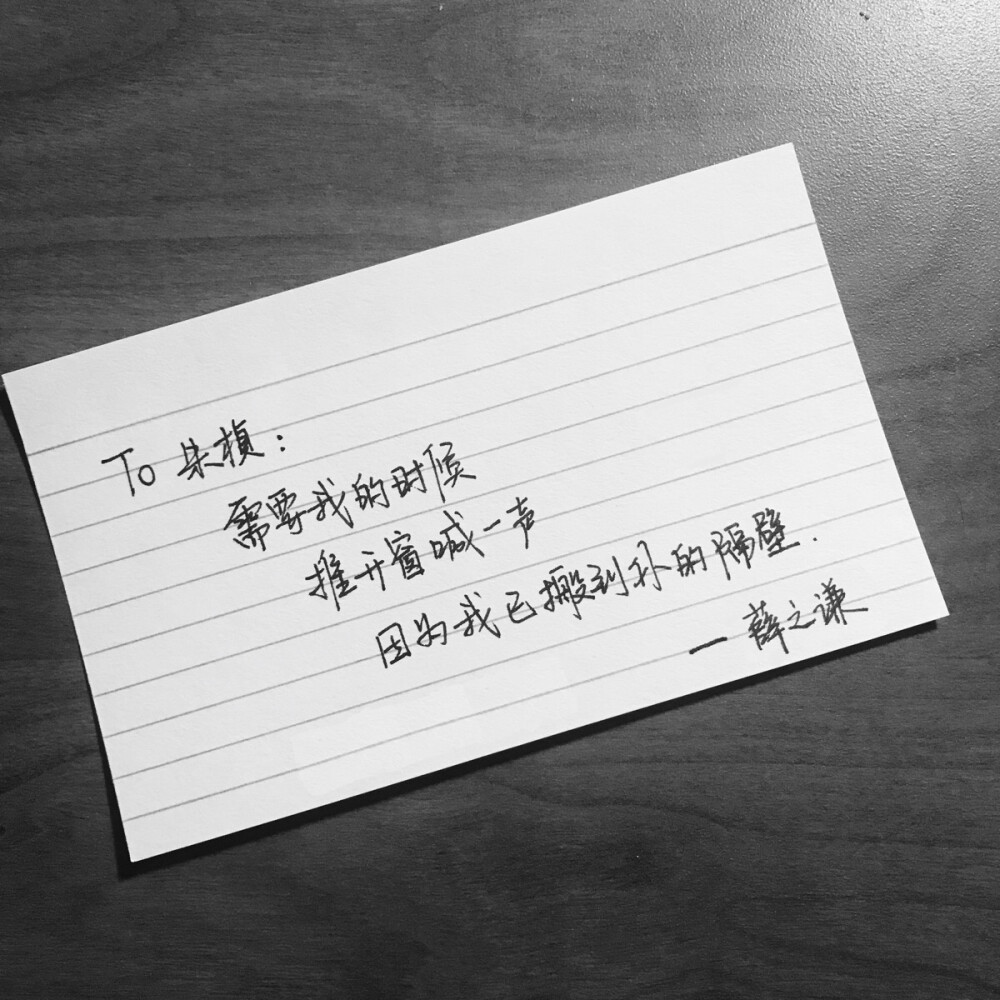 To 朱桢:
需要我的时候
推开窗喊一声
因为我已搬到朴的隔壁.
— 薛之谦